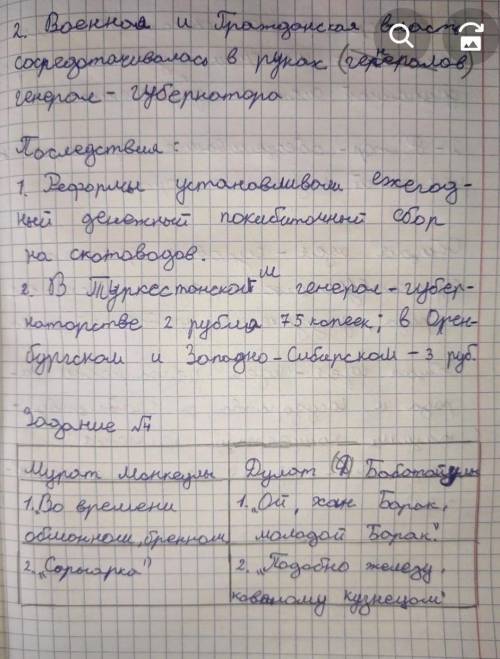 2. Военная и Гражданская власть
сосредотачивалась в руках (генералов)
генерал - губернатора
Последствия:
1. Реформы установливали ежегод-
ный денежный покибиточный сбор
на скотоводов.
2. В Туркестанском генерал-губер-
наторстве 2 рубля 75 копеек; в Орен-
бургском и Западно-Сибирском - 3 руб.
Задание №4
Мурат Монкеулы
Дулат Бабатайулы
1. Во времени
обманном, бренном
1. "Ой, хан Барак,
молодой Барак".
2. "Сарыарка"
2. "Подобно железу,
кованому кузнецом"